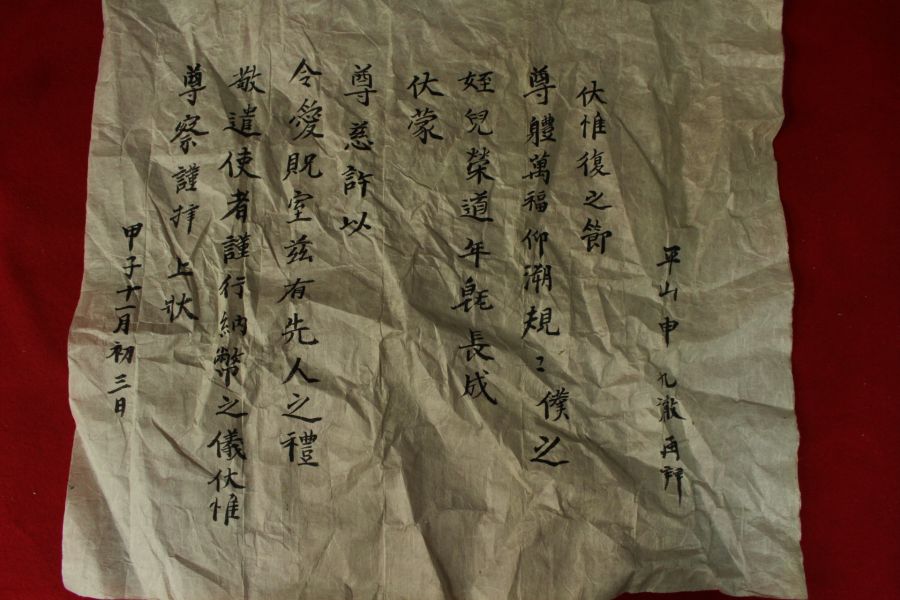 平山申 九澈再拜
伏惟復之節
尊體萬福仰溯規〻僕之
姪兒榮道年旣長成
伏蒙
尊慈許以
令愛貺室玆有先人之禮
敬遣使者謹行納幣之儀伏惟
尊察謹拜 上狀
甲子十一月初三日